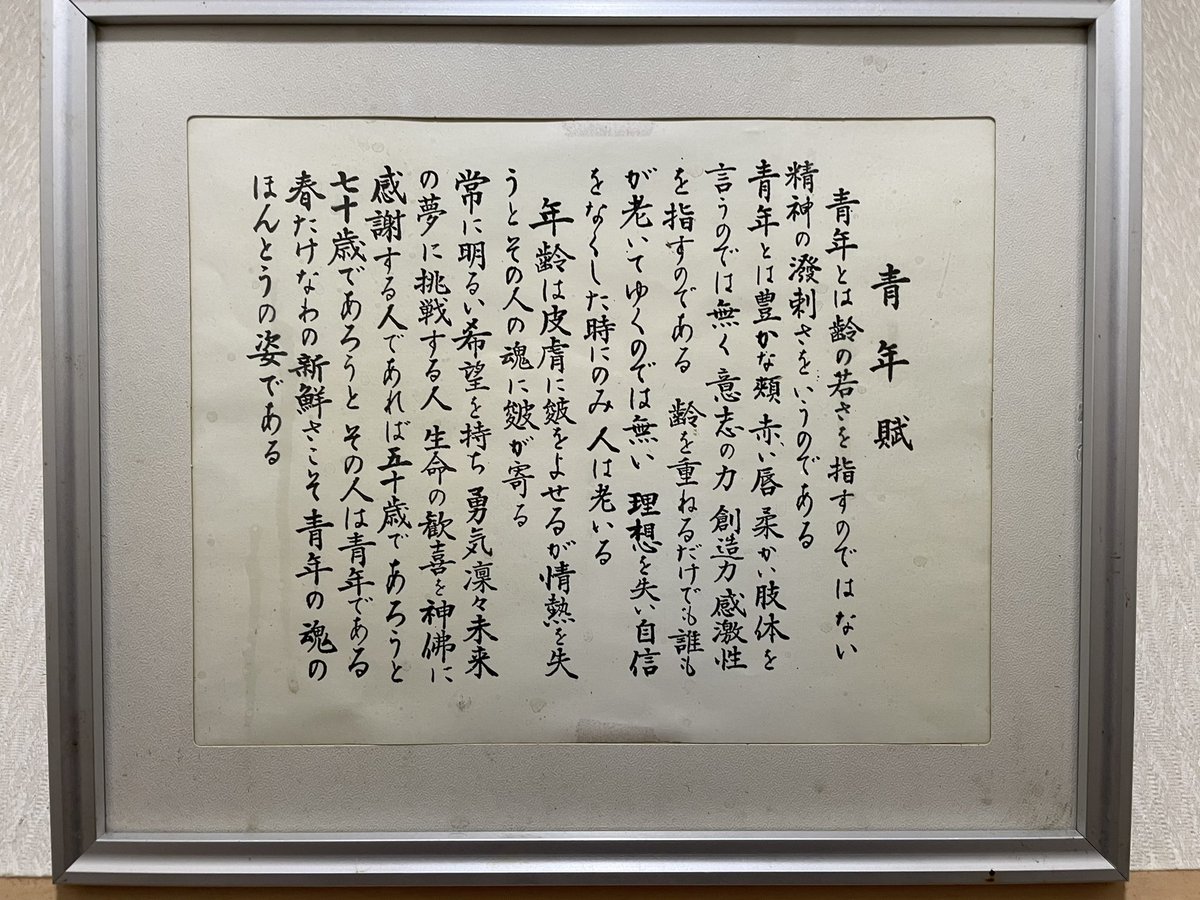 青年賦
青年とは齢の若さを指すのではない
精神の潑剌さをいうのである
青年とは豊かな頰 赤い唇 柔かい肢体を
言うのでは無く 意志の力 創造力 感激性
を指すのである 齢を重ねるだけでも誰も
が老いてゆくのでは無い 理想を失い自信
をなくした時にのみ 人は老いる
年齢は皮膚に皺をよせるが情熱を失
うとその人の魂に皺が寄る
常に明るい希望を持ち 勇気凜々未来
の夢に挑戦する人 生命の歓喜を神佛に
感謝する人であれば五十歳であろうと
七十歳であろうと その人は青年である
春たけなわの新鮮さこそ 青年の魂の
ほんとうの姿である